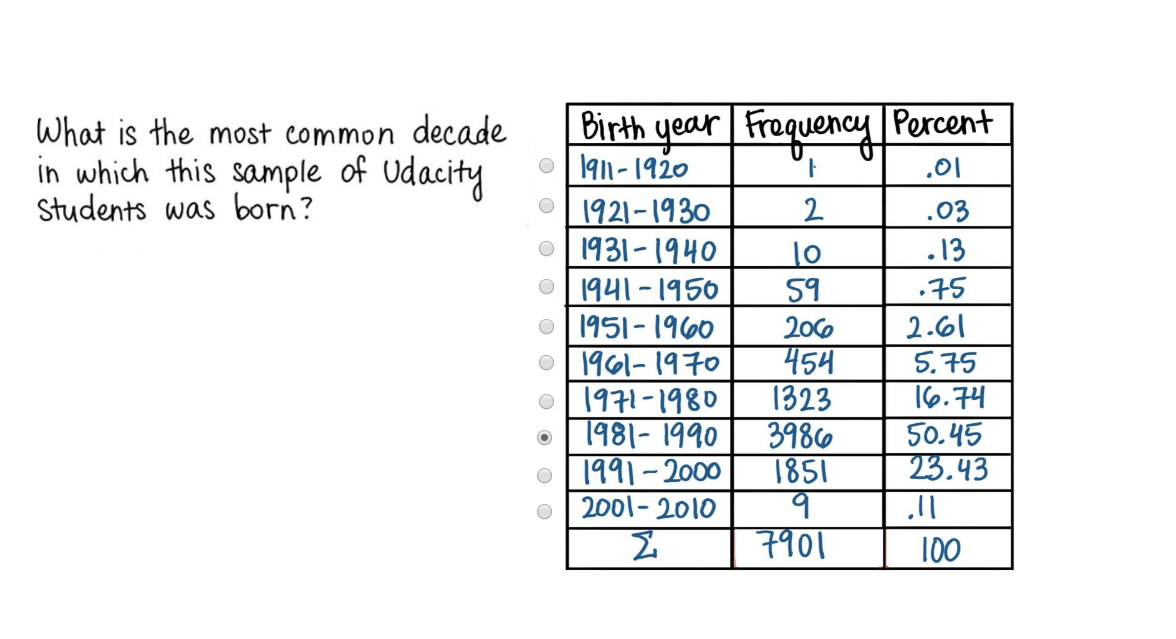 What is the most common decade
in which this sample of Udacity
Students was born?
Birth year Frequency Percent
1911-1920 1 .01
1921-1930 2 .03
1931-1940 10 .13
1941-1950 59 .75
1951-1960 206 2.61
1961-1970 454 5.75
1971-1980 1323 16.74
1981-1990 3986 50.45
1991-2000 1851 23.43
2001-2010 9 .11
Σ 7901 100